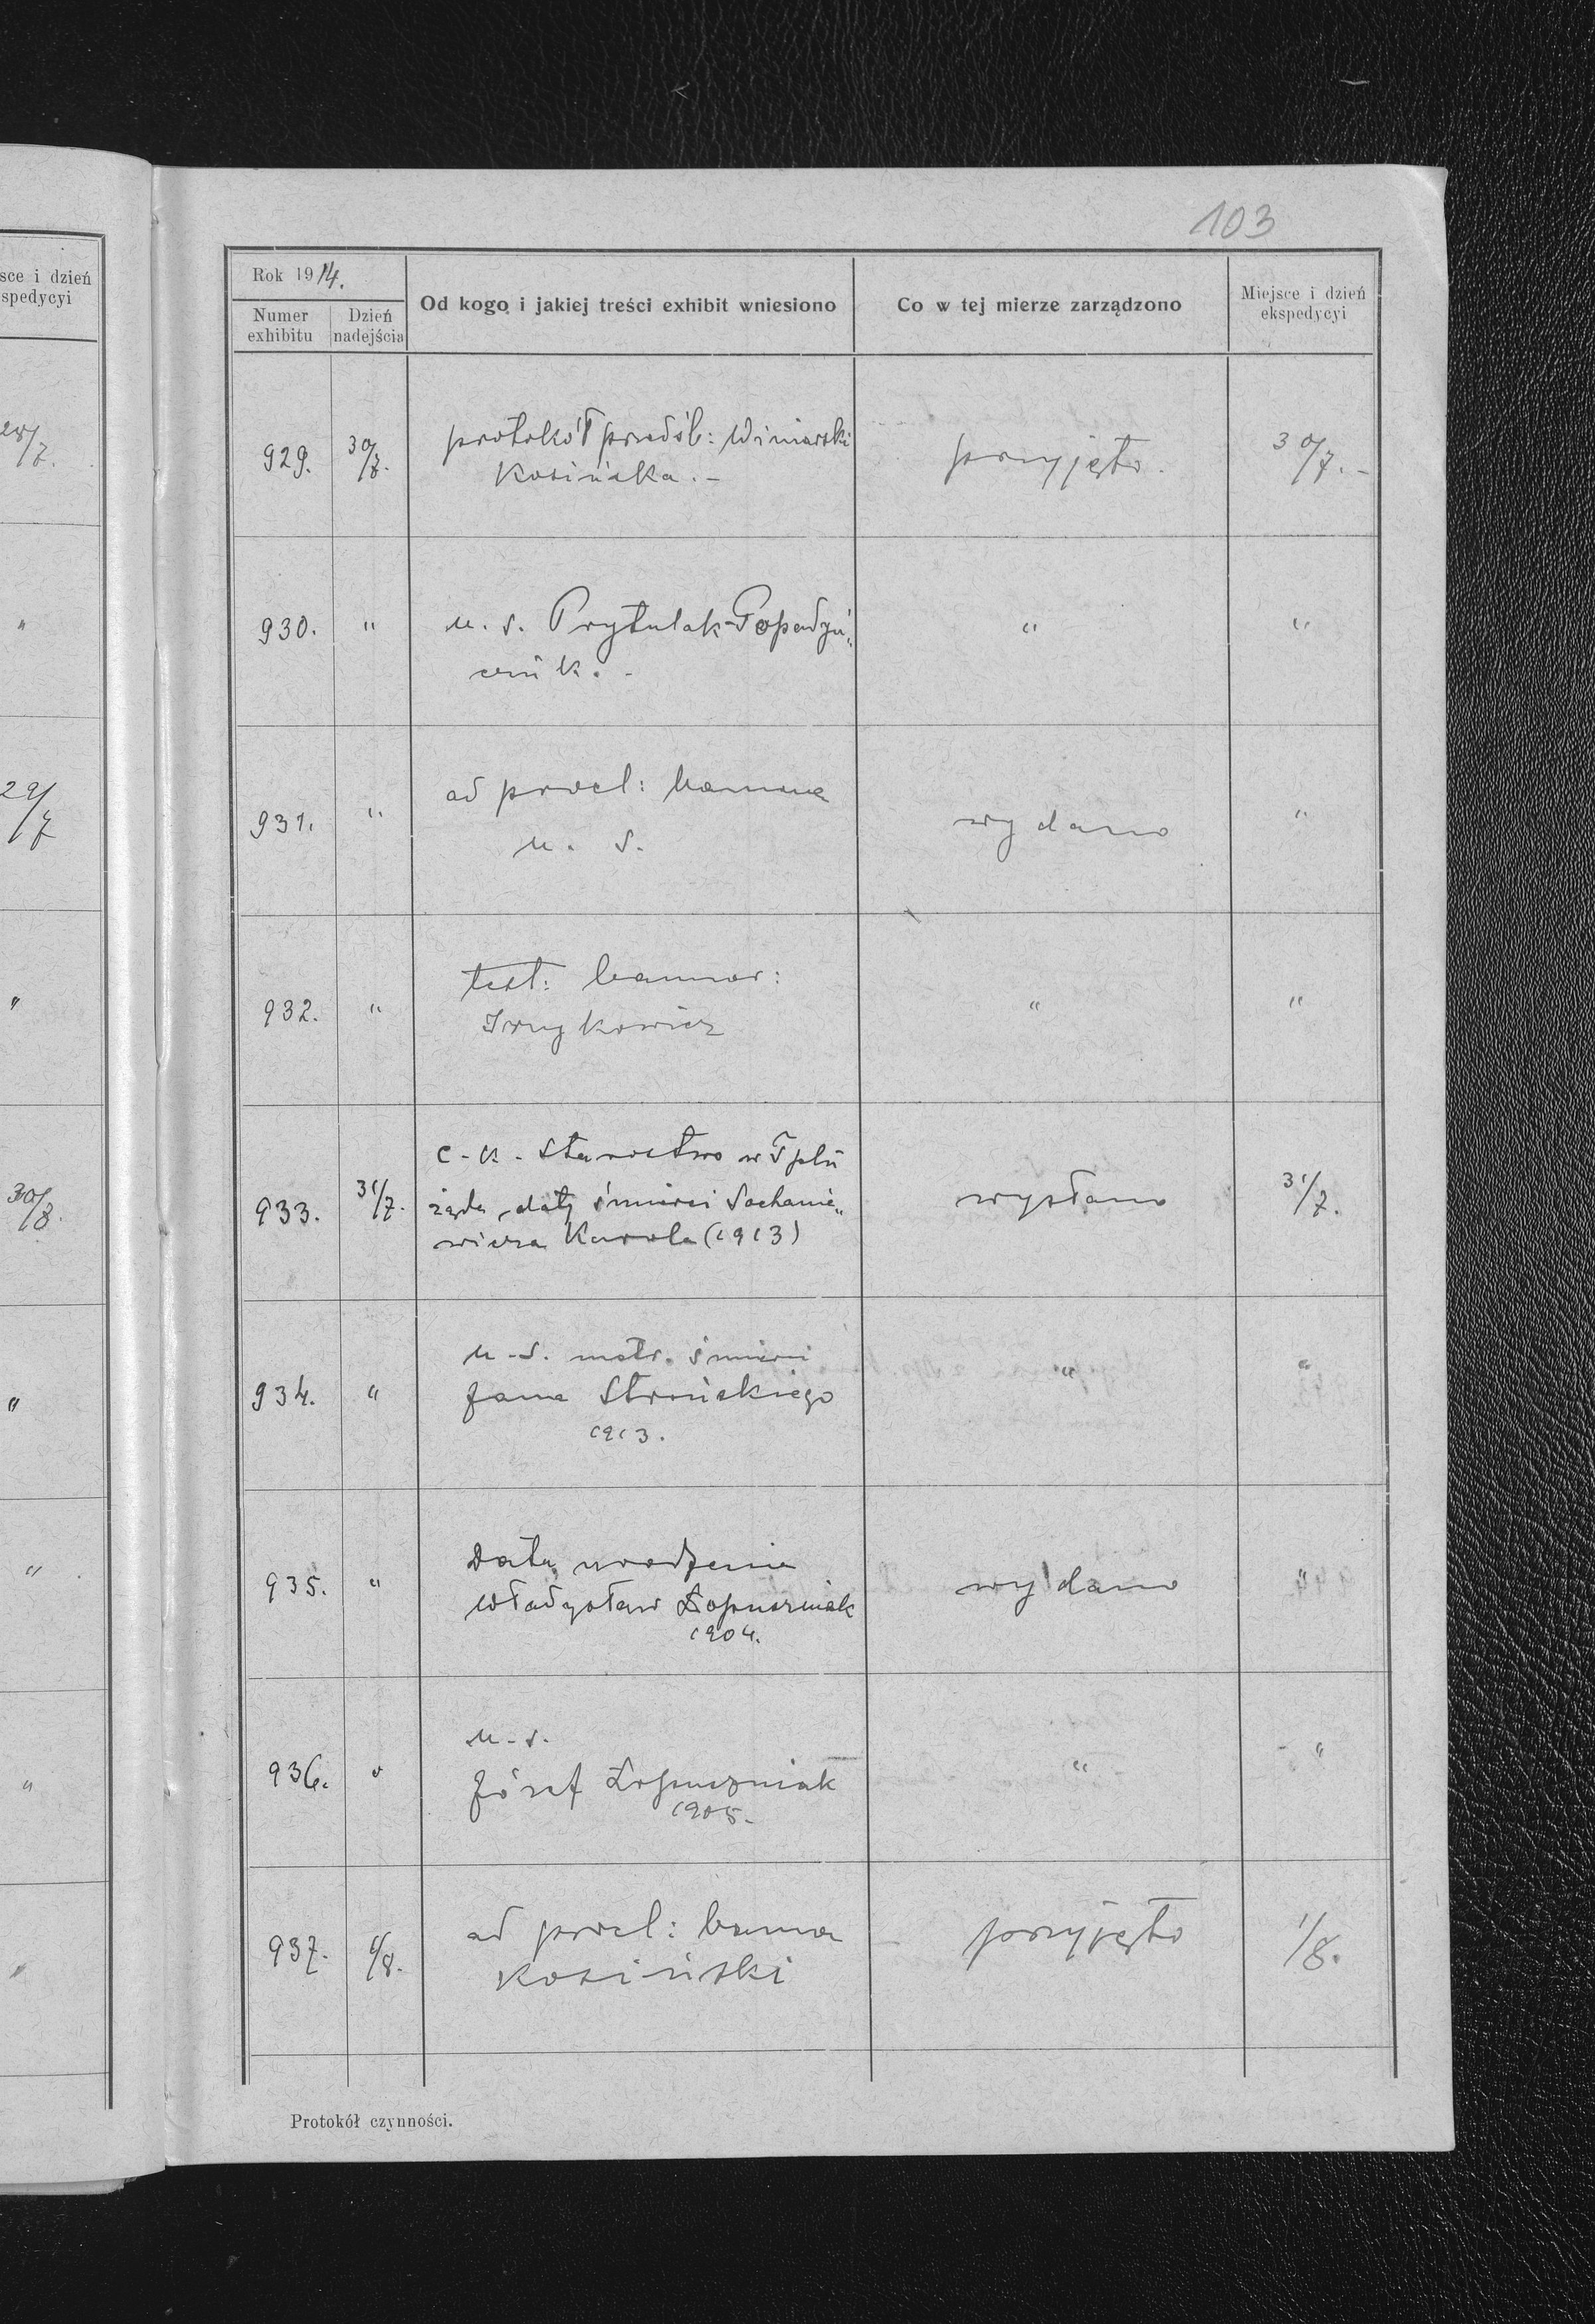 sce i dzień
spedycyi
28/7.
"
29/7
"
30/8.
"
"
"
103
Rok 1914.
Numer exhibitu
Dzień nadejścia
Od kogo i jakiej treści exhibit wniesiono
Co w tej mierze zarządzono
Miejsce i dzień ekspedycyi
929. 30/7. protokół przedśl: Winiarski przyjęto. 30/7.-
Kosińska.-
930. " u. s. Prytulak- " "
931. " ad procl: banna wydano "
u. s.
932. " test: bannor: " "
Irzykowicz
933. 31/7. c. k. Starostwo w wysłano 31/7.
żąda daty śmierci Sochanie„
wicza Karola (1913)
934. " u. s. metr. śmierci " "
Jana Strońskiego
1913.
935. " Data urodzenia wydano "
Władysław Łopuszniak
1904.
936. " u. s. " "
Józef Łopuszniak
1905.
937. 1/8. ad procl: banna przyjęto 1/8.
Kosiński
Protokół czynności.